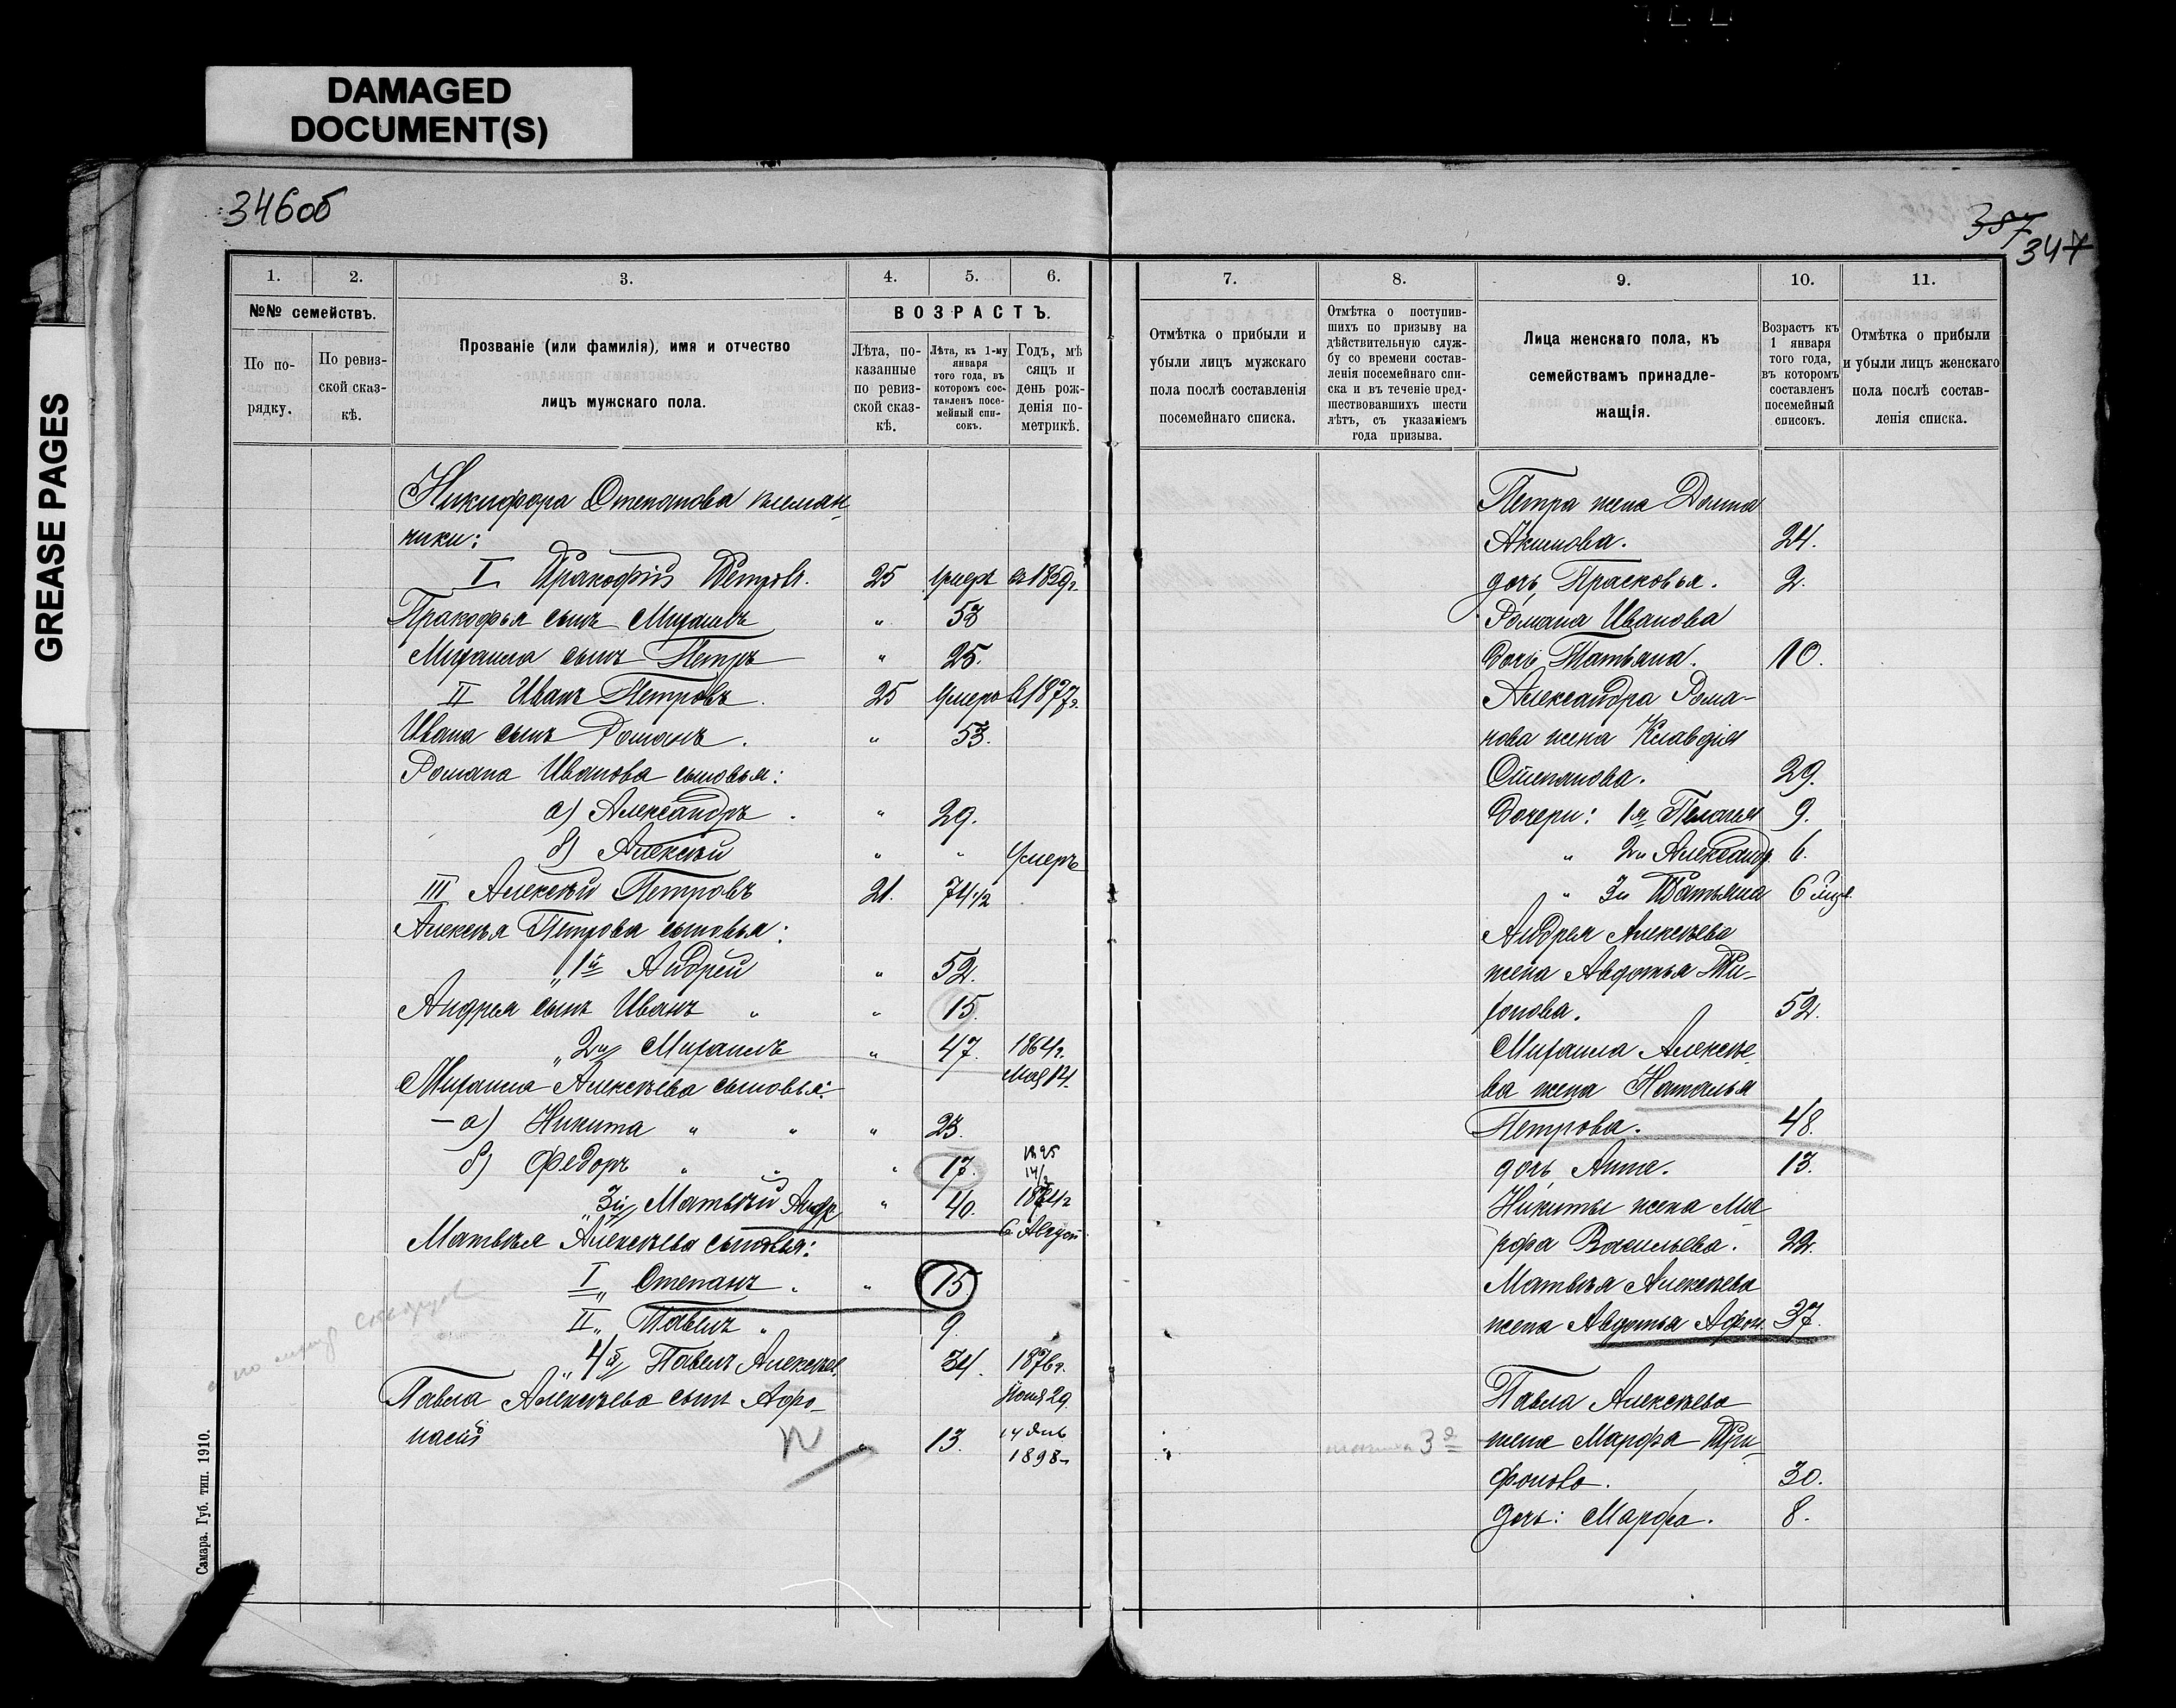 DAMAGED
DOCUMENT(S)
GREASE PAGES
346об
387
347
1.
2.
3.
4.
5.
6.
№№ семействъ.
ВОЗРАСТЪ.
По по-
рядку.
По ревиз-
ской сказ-
кѣ.
Прозваніе (или фамилія), имя и отчество
лицъ мужскаго пола.
Лѣта, по-
казанные
по ревиз-
ской сказ-
кѣ.
Лѣта, къ 1-му
января
того года, въ
которомъ сос-
тавленъ посе-
мейный спи-
сокъ.
Годъ, мѣ
сяцъ и
день рож-
денія по-
метрикѣ.
Никифора Степанова племян-
ники:
I Пракофій Петровъ. 25 умеръ въ 1859г.
Пракофья сынъ Михаилъ " 58
Михаила сынъ Петръ " 25.
II Иванъ Петровъ. 25 умеръ въ 1877г.
Ивана сынъ Романъ. " 53.
Романа Иванова сыновья:
а) Александръ. " 29.
б) Алексѣй " " умеръ
III Алексѣй Петровъ 21. 74 1/2
Алексѣя Петрова сыновья:
" 1й Андрей " 52.
Андрея сынъ Иванъ " " 15.
" 2й Михаилъ " 47. 1864г.
Мая 14.
Михаила Алексѣева сыновья:
— а) Никита " " " 23.
б) Федоръ " " " 17. 1895
" 3й Матвѣй " 40.
6 Август
Матвѣя Алексѣева сыновья:
I " Степанъ. " 15.
II " Павелъ " 9.
" 4й Павелъ Алексѣев. 34. 1876г.
Іюня 29.
Павла Алексѣева сынъ Афо-
насій " 13. 14 Янв
1898
Самара. Губ. тип. 1910.
7.
8.
9.
10.
11.
Отмѣтка о прибыли и
убыли лицъ мужскаго
пола послѣ составленія
посемейнаго списка.
Отмѣтка о поступив-
шихъ по призыву на
дѣйствительную служ-
бу со времени состав-
ленія посемейнаго спи-
ска и въ теченіе пред-
шествовавшихъ шести
лѣтъ, съ указаніемъ
года призыва.
Лица женскаго пола, къ
семействамъ принадле-
жащія.
Возрастъ къ
1 января
того года,
въ которомъ
составленъ
посемейный
списокъ.
Отмѣтка о прибыли
и убыли лицъ женскаго
пола послѣ состав-
ленія списка.
Петра жена Домна
Акимова. 24.
дочь Прасковья. 2.
Романа Иванова
дочь Татьяна. 10.
Александра Рома-
нова жена Клавдія
Степанова. 29.
Дочери: 1я Пелагея 9.
" 2я Александр. 6.
" 3я Татьяна 6 мца.
Андрея Алексѣева
жена Авдотья Ти-
хонова. 52.
Михаила Алексѣе-
ва жена Наталья
Петрова. 48.
дочь Анна. 13.
Никиты жена Ма-
рфа Васильева. 22.
Матвѣя Алексѣева
жена Авдотья Афон. 37.
Павла Алексѣева
3я жена Марфа Три-
фонова. 30.
дочь: Марфа. 8.